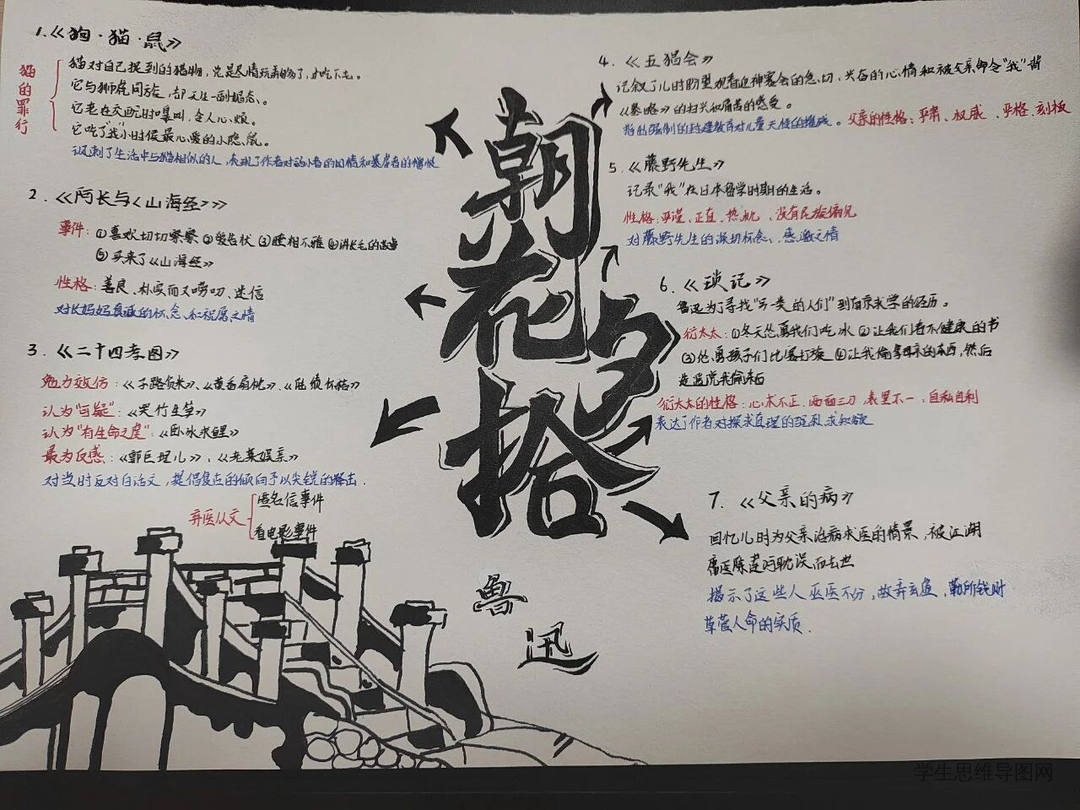 1.《狗·猫·鼠》
猫的罪行
猫对自己捉到的猎物,总是尽情玩弄够了,才吃下去。
它与狮虎同族,却天生一副媚态。
它老在交配时嗥叫,令人心烦。
它吃了我小时候最心爱的小隐鼠。
讽刺了生活中与猫相似的人,表现了作者对弱小者的同情和暴虐者的憎恨
2.《阿长与《山海经》》
事件:①喜欢切切察察②爱告状③睡相不雅④讲长毛的故事
⑤买来了《山海经》
性格:善良、朴实而又唠叨、迷信
对长妈妈真诚的怀念和祝愿之情
3.《二十四孝图》
勉力效仿:《子路负米》、《黄香扇枕》、《陆绩怀橘》
认为"可疑":《哭竹生笋》
认为"有生命之虞":《卧冰求鲤》
最为反感:《郭巨埋儿》、《老莱娱亲》
对当时反对白话文,提倡复古的倾向予以尖锐的抨击.
弃医从文
匿名信事件
看电影事件
朝花夕拾
鲁迅
4.《五猖会》
记叙了儿时盼望观看迎神赛会的急切,兴奋的心情和被父亲命令"我"背
《鉴略》的扫兴和痛苦的感受。
指出强制的封建教育对儿童天性的摧残。父亲的性格:严肃、权威、严格、刻板
5.《藤野先生》
记录"我"在日本留学时期的生活。
性格:严谨、正直、热忱、没有民族偏见
对藤野先生的深切怀念、感激之情
6.《琐记》
鲁迅为了寻找"另一类的人们"到南京求学的经历。
衍太太:①冬天怂恿我们吃冰②让我们看不健康的书
③怂恿孩子们比赛打旋④让我偷母亲的东西,然后
造谣说我偷东西
衍太太的性格:心术不正、两面三刀、表里不一、自私自利
表达了作者对探求真理的强烈求知欲
7.《父亲的病》
回忆儿时为父亲治病求医的情景,被江湖
庸医陈莲河耽误而去世
揭示了这些人巫医不分,故弄玄虚,勒所钱财
草菅人命的实质.
学生思维导图网